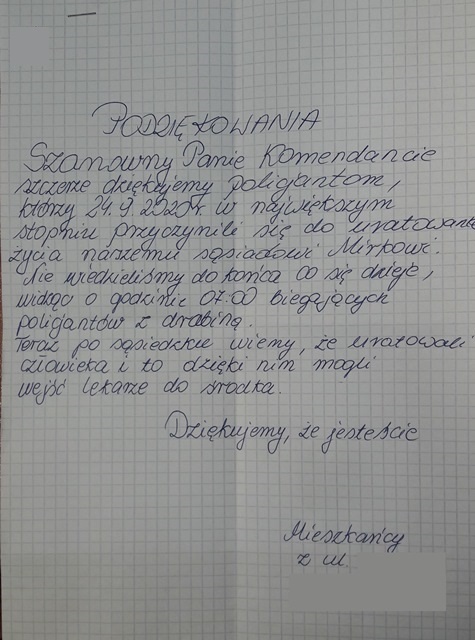 PODZIĘKOWANIA
Szanowny Panie Komendancie
szczerze dziękujemy poligantom,
którzy 24.9.2020r. w największym
stopniu przyczynili się do uratowania
życia naszemu sąsiadowi Mirkowi.
Nie wiedzieliśmy do końca co się dzieje,
widząc o godzinie 07.00 biegających
poligantów z drabiną.
Teraz po sąsiedzku wiemy, że uratowali
człowieka i to dzięki nim mogli
wejść lekarze do środka.
Dziękujemy, że jesteście
Mieszkańcy
z ul.